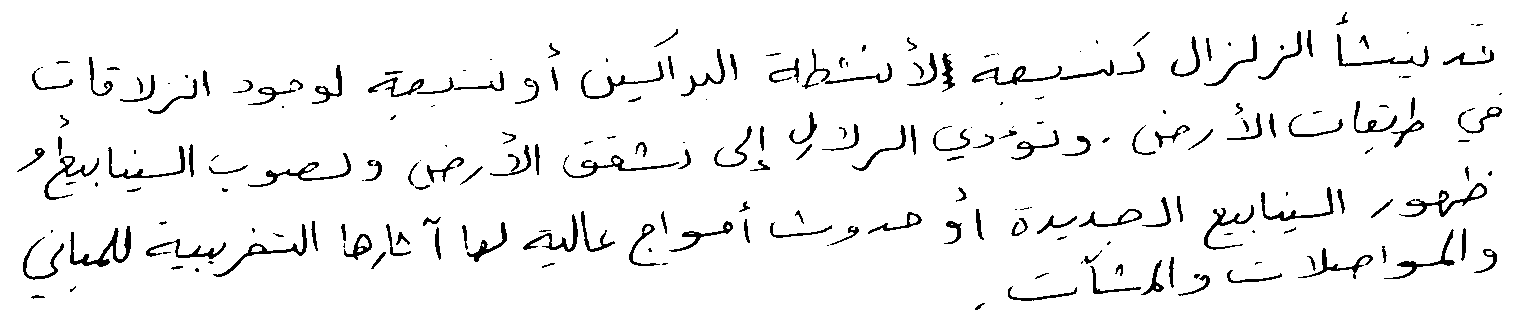 قد ينشأ الزلزال كنتيجة لأنشطة البراكين أو نتيجة لوجود انزلاقات
في طبقات الأرض. وتؤدي الزلازل إلى تشقق الأرض ونضوب الينابيع أو
ظهور الينابيع الجديدة أو حدوث أمواج عالية لها آثارها التخريبية للمباني
والمواصلات والمنشآت.